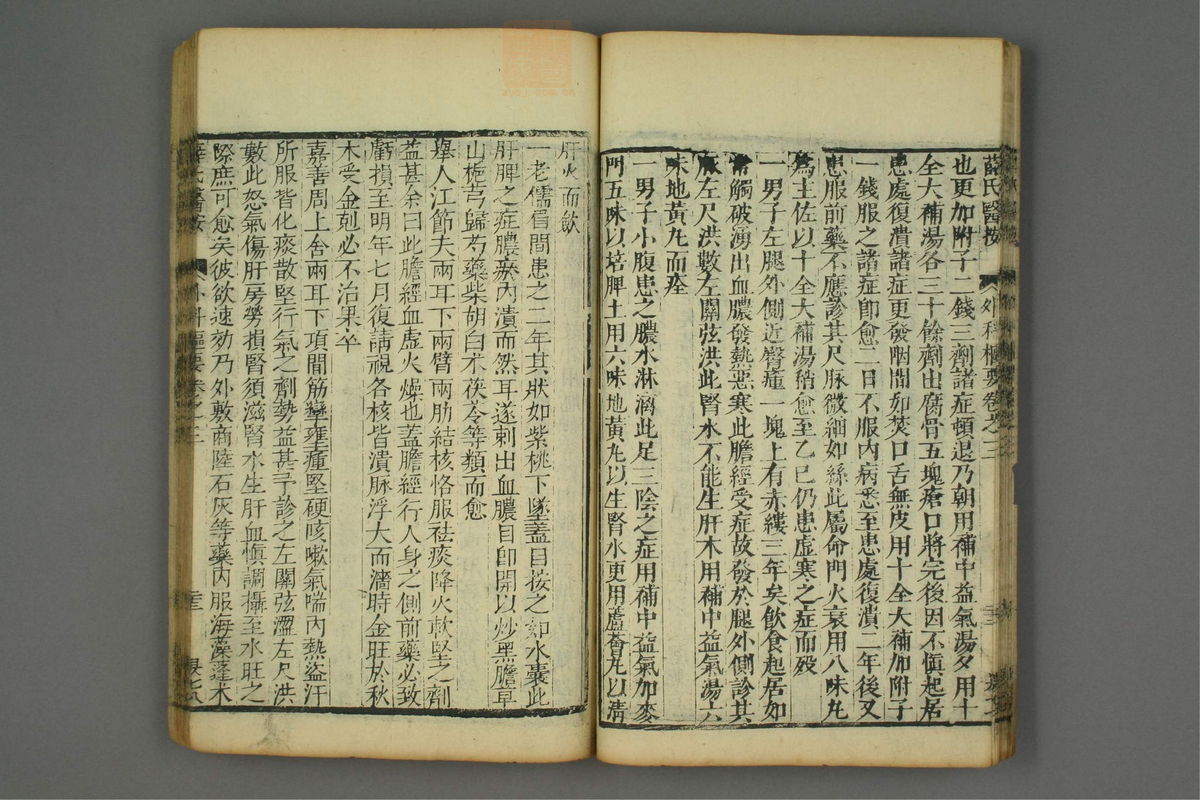 薛氏醫按 外科樞要卷之三
也更加附子二錢三劑諸症頓退乃朝用補中益氣湯夕用十
全大補湯各三十餘劑出腐骨五塊瘡口將完後因不愼起居
患處復潰諸症更發咽間如焚口舌無皮用十全大補加附子
一錢服之諸症卽愈二日不服內病悉至患處復潰二年後又
患服前藥不應診其尺脉微細如絲此屬命門火衰用八味丸
爲主佐以十全大補湯稍愈至乙巳仍患虛寒之症而歿
一男子左腿外側近臀瘇一塊上有赤縷三年矣飲食起居如
常觸破湧出血膿發熱惡寒此膽經受症故發於腿外側診其
脉左尺洪數左關弦洪此腎水不能生肝木用補中益氣湯六
味地黃丸而痊
一男子小腹患之膿水淋漓此足三陰之症用補中益氣加麥
門五味以培脾土用六味地黃丸以生腎水更用蘆薈丸以淸
肝火而歛
一老儒眉間患之二年其狀如紫桃下墜蓋目按之如水囊此
肝脾之症膿瘀內潰而然耳遂刺出血膿目卽開以炒黑膽草
山梔芎歸芍藥柴胡白朮茯苓等類而愈
擧人江節夫兩耳下兩臂兩肋結核恪服祛痰降火軟堅之劑
益甚余曰此膽經血虛火燥也蓋膽經行人身之側前藥必致
虧損至明年七月復請視各核皆潰脉浮大而濇時金旺於秋
木受金剋必不治果卒
嘉善周上舍兩耳下項間筋攣壅瘇堅硬咳嗽氣喘內熱盜汗
所服皆化痰散堅行氣之劑勢益甚予診之左關弦澀左尺洪
數此怒氣傷肝房勞損腎須滋腎水生肝血愼調攝至水旺之
際庶可愈矣彼欲速効乃外敷商陸石灰等藥內服海藻蓬朮
薛氏醫按 外科樞要卷之三